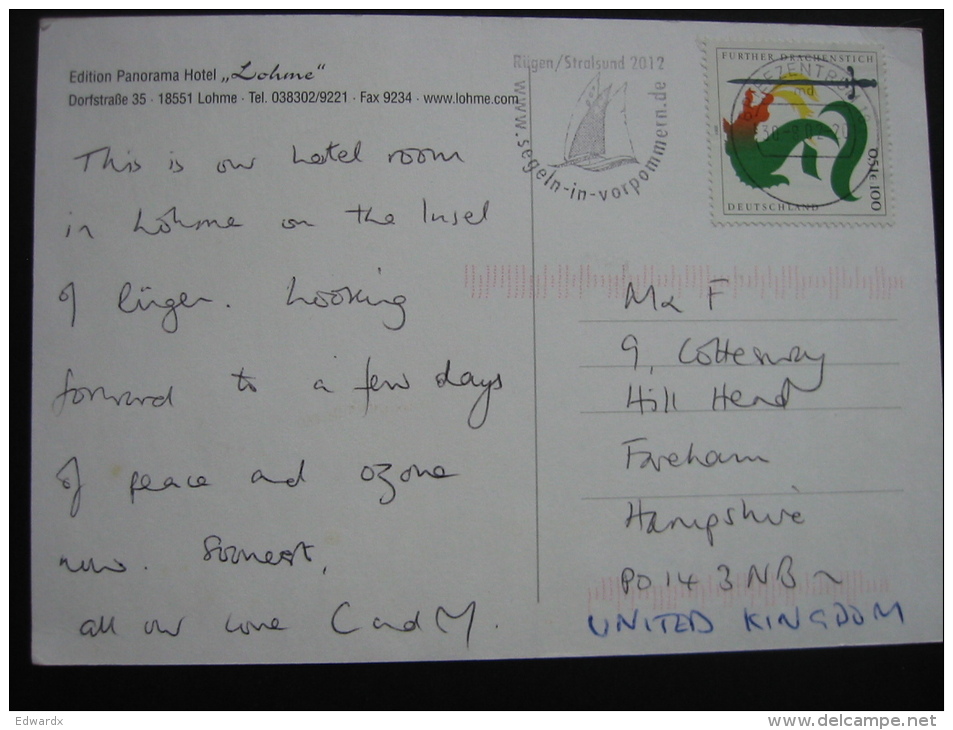 Edition Panorama Hotel „Lohme“
Dorfstraße 35 · 18551 Lohme · Tel. 038302/9221 · Fax 9234 · www.lohme.com
This is our hotel room
in Lohme on the Insel
of Rügen. Looking
forward to a few days
of peace and ozone
now. Soonest,
all our love C and M.
Rügen/Stralsund 2012
www.segeln-in-vorpommern.de
FURTHER DRACHENSTICH
DEUTSCHLAND
100
0,51€
Mr F
9, Cottesway
Hill Head
Fareham
Hampshire
PO14 3NB
UNITED KINGDOM
Edwardx
www.delcampe.net